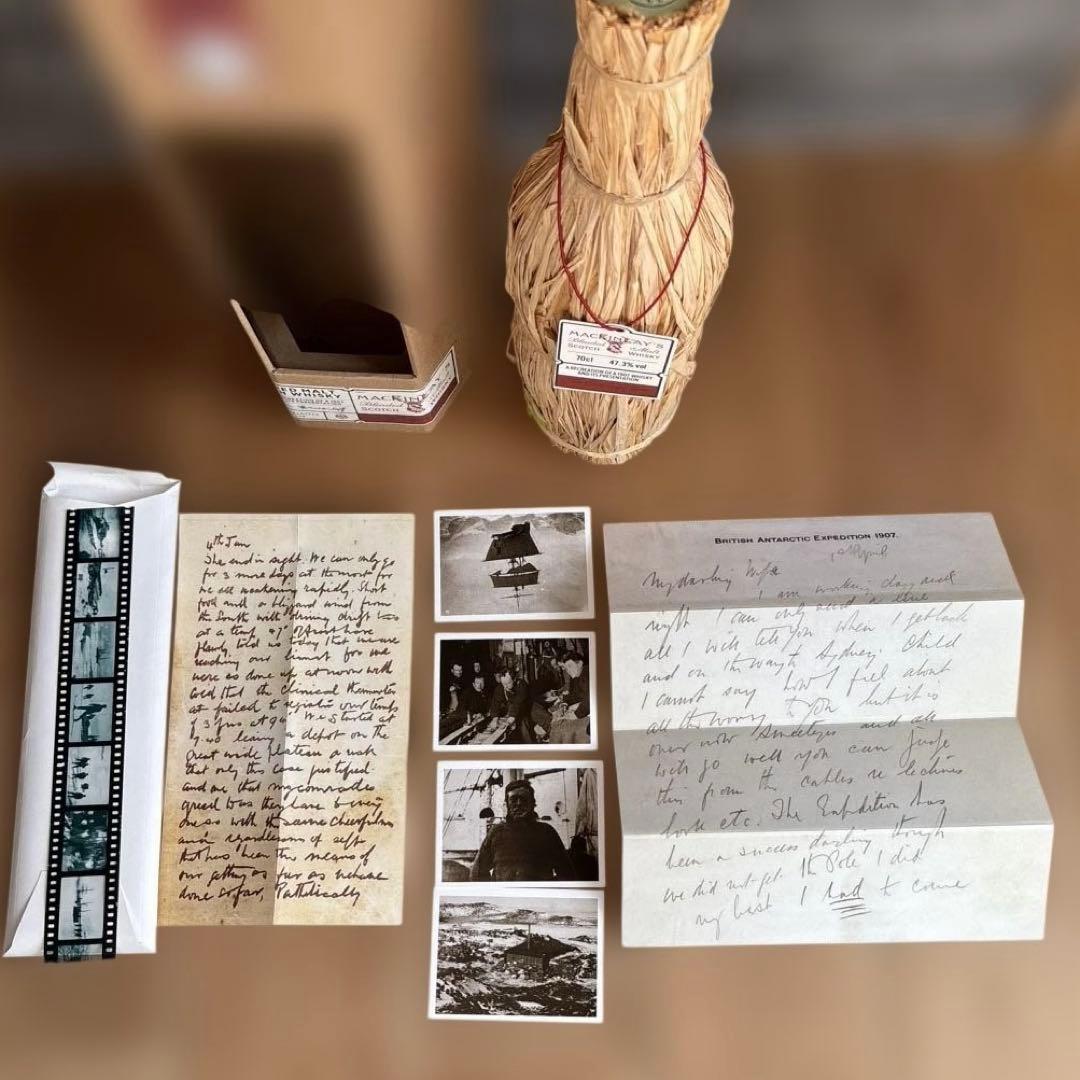 MACKINLAY'S
Blended Malt
SCOTCH WHISKY
70cl 47.3% vol
A RECREATION OF A 1907 WHISKY
AND ITS PRESENTATION
MALT
WHISKY
MACKINLAY
Blended
SCOTCH
4th Jan
The end is in sight. We can only go
for 3 more days at the most for
we are weakening rapidly. Short
food and a blizzard wind from
the South with driving drift has
at a temp 47° of frost have
plainly told us today that we are
reaching our limit for we
were so done up at noon with
cold that the clinical thermometer
failed to register our temps
of 3 four at 94° We started at
leaving a depot on the
great wide plateau a risk
that only this case justified
and one that my comrades
agreed to as they have to every
one so with the same cheerfulness
and regardlessness of self
that has been the means of
our getting as far as we have
done so far, Pathetically
BRITISH ANTARCTIC EXPEDITION 1907.
April
My darling Wife
I am working day and
night I can only send a line
all I will tell you when I get back
and on the way to Sydney. Child
I cannot say how I feel about
all the worry to you but it is
over now Sweeteyes and all
will go well you can judge
this from the cables re lectures
book etc. The Expedition has
been a success darling though
we did not get the Pole I did
my best I had to come